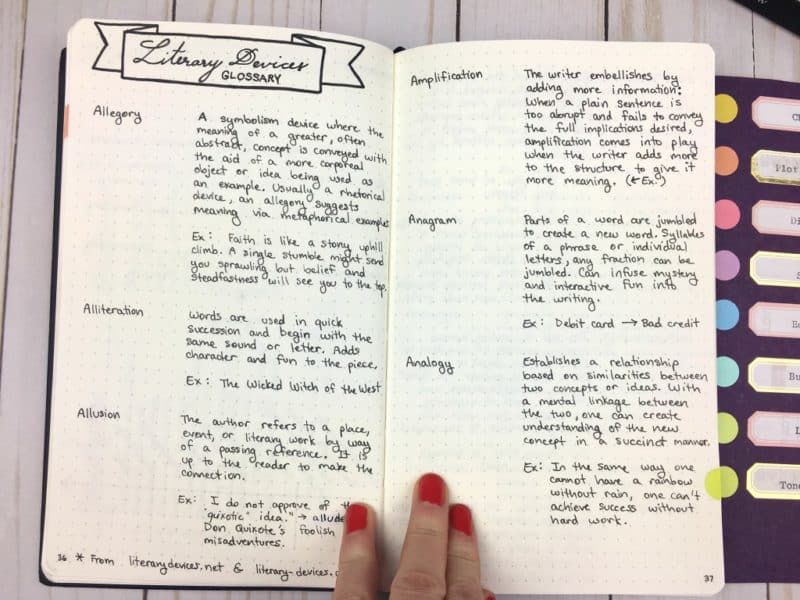 Literary Devices
GLOSSARY
Allegory
A symbolism device where the
meaning of a greater, often
abstract, concept is conveyed with
the aid of a more corporeal
object or idea being used as
an example. Usually a rhetorical
device, an allegory suggests
meaning via metaphorical examples
Ex: Faith is like a stony uphill
climb. A single stumble might send
you sprawling but belief and
steadfastness will see you to the top.
Alliteration
Words are used in quick
succession and begin with the
same sound or letter. Adds
character and fun to the piece,
Ex: The Wicked Witch of the West
Allusion
The author refers to a place,
event, or literary work by way
of a passing reference. It is
up to the reader to make the
connection.
Ex: I do not approve of
"quixotic" idea." → allude
Don Quixote's foolish
misadventures.
36 * From literarydevices.net & literary-devices.
Amplification
The writer embellishes by
adding more information:
When a plain sentence is
too abrupt and fails to convey
the full implications desired,
amplification comes into play
when the writer adds more
to the structure to give it
more meaning. (← Ex!)
Anagram
Parts of a word are jumbled
to create a new word. Syllables
of a phrase or individual
letters, any fraction can be
jumbled. Can infuse mystery
and interactive fun into
the writing.
Ex: Debit card → Bad credit
Analogy
Establishes a relationship
based on similarities between
two concepts or ideas. With
a mental linkage between
the two, one can create
understanding of the new
concept in a succinct manner.
Ex: In the same way one
cannot have a rainbow
without rain, one can't
achieve success without
hard work.
37
Plot
Tone